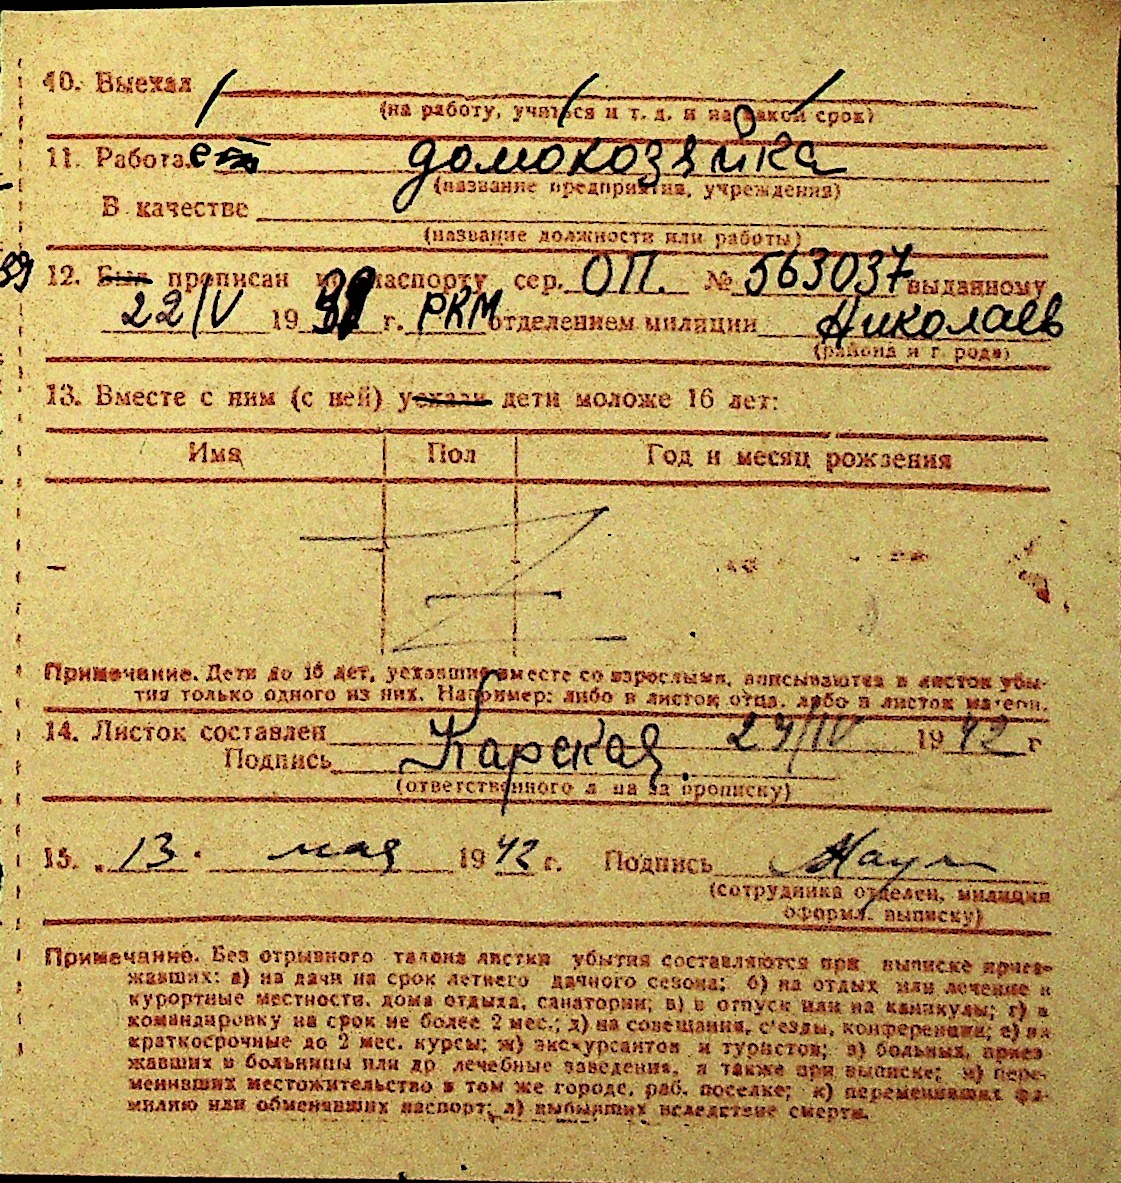 10. Выехал
(на работу, учиться и т. д. и на какой срок)
11. Работает домохозяйка
(название предприятия, учреждения)
В качестве
(название должности или работы)
39
12. Был прописан по паспорту сер. ОП. № 563037 выданному
22/V 19 г. РКМ отделением милиции Николаев
(района и города)
13. Вместе с ним (с ней) уехали дети моложе 16 лет:
Имя Пол Год и месяц рождения
Примечание. Дети до 16 лет, уехавшие вместе со взрослыми, вписываются в листок убы-
тия только одного из них. Например: либо в листок отца, либо в листок матери.
14. Листок составлен 24/IV 1942 г
Подпись Карская.
(ответственного л на за прописку)
15. „ 13. мая 1942 г. Подпись
(сотрудника отделен. милиции
оформл. выписку)
Примечание. Без отрывного талона листки убытия составляются при выписке приез-
жавших: а) на дачи на срок летнего дачного сезона; б) на отдых или лечение в
курортные местности, дома отдыха, санатории; в) в отпуск или на каникулы; г) в
командировку на срок не более 2 мес.; д) на совещания, с'езды, конференции; е) на
краткосрочные до 2 мес. курсы; ж) экскурсантов и туристов; з) больных, приез
жавших в больницы или др лечебные заведения, а также при выписке; и) пере-
менивших местожительство в том же городе, раб. поселке; к) переменивших фа-
милию или обменявших паспорт; л) выбывших вследствие смерти.